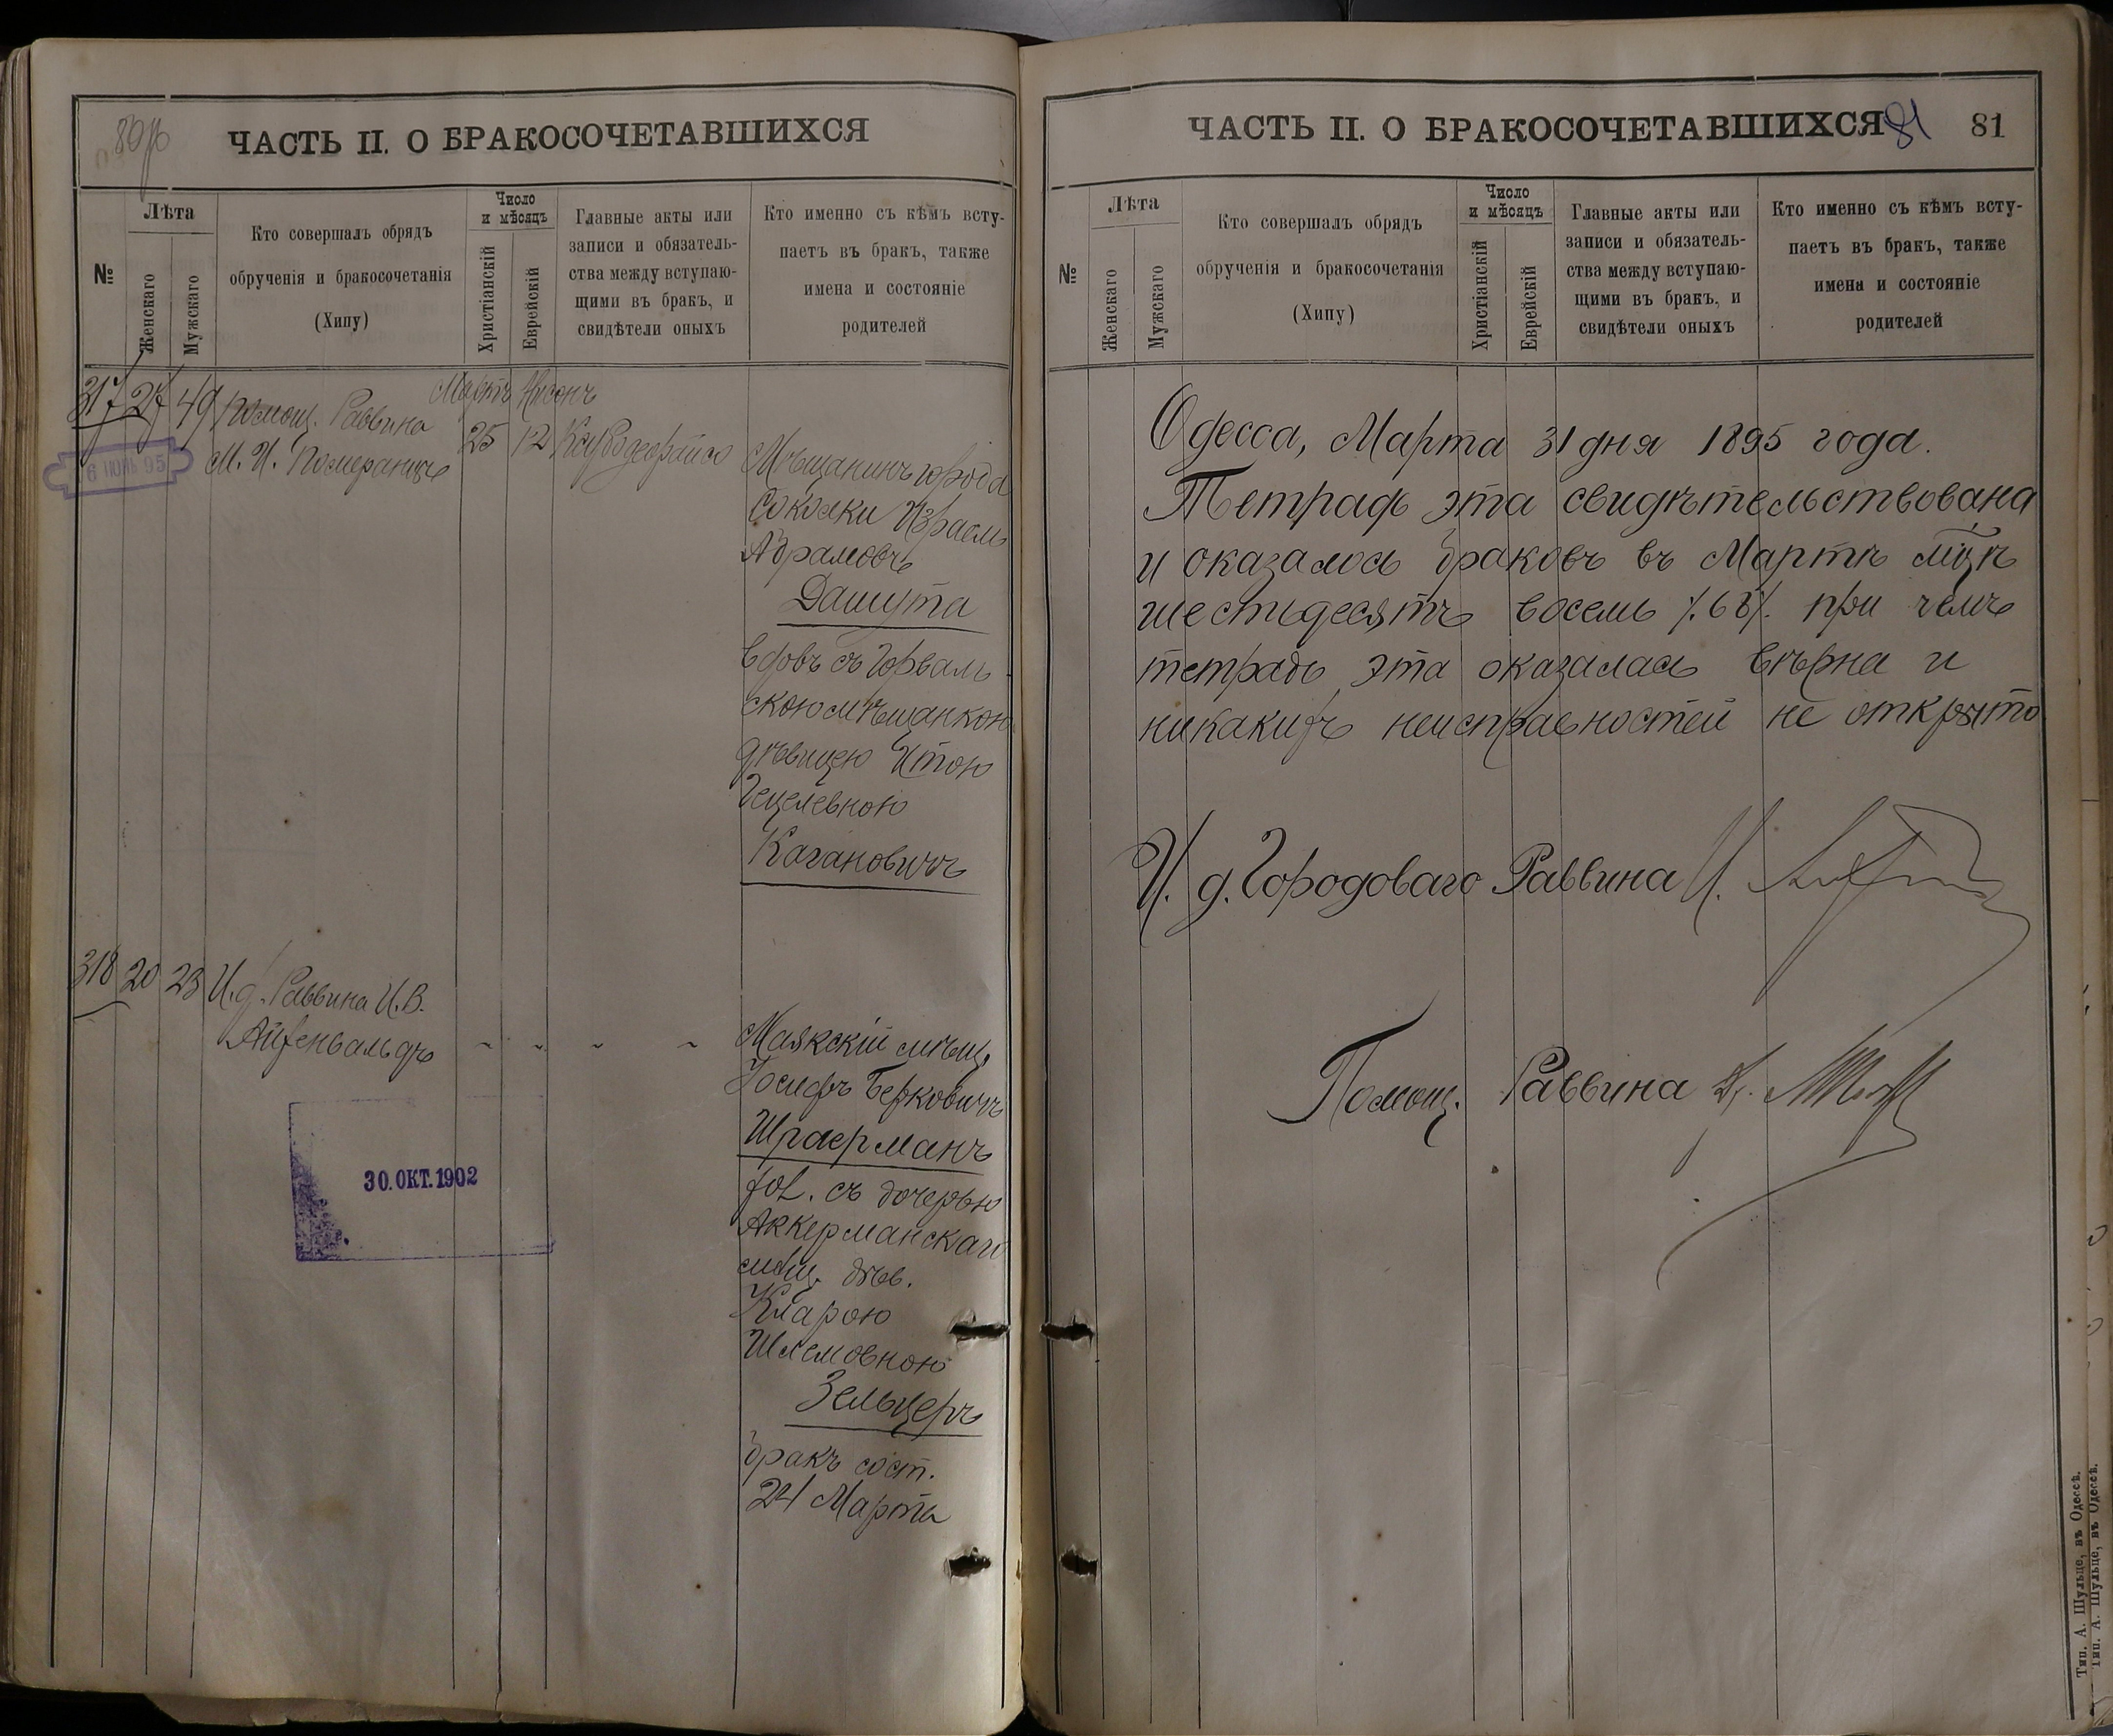 80 об
ЧАСТЬ II. О БРАКОСОЧЕТАВШИХСЯ
№
Лѣта
Женскаго
Мужскаго
Кто совершалъ обрядъ
обрученія и бракосочетанія
(Хипу)
Число
и мѣсяцъ
Христіанскій
Еврейскій
Главные акты или
записи и обязатель-
ства между вступаю-
щими въ бракъ, и
свидѣтели оныхъ
Кто именно съ кѣмъ всту-
паетъ въ бракъ, также
имена и состояніе
родителей
Мартъ Нисонъ
317 27 49 Помощ. Раввина
М. И. Померанцъ
25 12
6 ІЮНЬ 95
Мѣщанинъ города
Соколки Израель
Абрамовъ
Дашута
вдовъ съ Горваль-
скою мѣщанкою
дѣвицею Итою
Гецелевною
Кагановичъ
318 20 23 И. д. Раввина И. В.
Айзенвальдъ
30.ОКТ.1902
Маякскій мѣщ.
Іосифъ Берковичъ
Шраерманъ
хол. съ дочерью
Аккерманскаго
мѣщ. дѣв.
Кларою
Шлемовною
Зельцеръ
бракъ сост.
24 Марта
ЧАСТЬ II. О БРАКОСОЧЕТАВШИХСЯ
81
81
№
Лѣта
Женскаго
Мужскаго
Кто совершалъ обрядъ
обрученія и бракосочетанія
(Хипу)
Число
и мѣсяцъ
Христіанскій
Еврейскій
Главные акты или
записи и обязатель-
ства между вступаю-
щими въ бракъ, и
свидѣтели оныхъ
Кто именно съ кѣмъ всту-
паетъ въ бракъ, также
имена и состояніе
родителей
Одесса, Марта 31 дня 1895 года.
Тетрадь эта свидѣтельствована
и оказалось браковъ въ Мартѣ мцѣ
шестьдесятъ восемь /.68/. при чемъ
тетрадь эта оказалась вѣрна и
никакихъ неисправностей не открыто
И. д. Городоваго Раввина И.
Помощ. Раввина
Тип. А. Шульце, въ Одессѣ.
Тип. А. Шульце, въ Одессѣ.